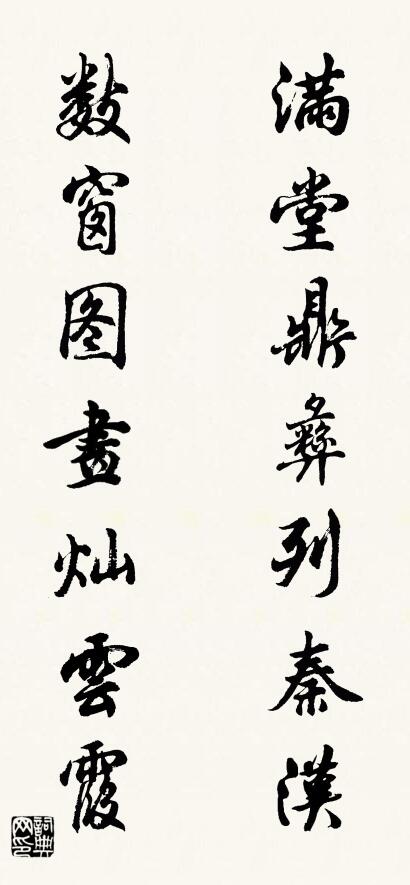 满堂鼎彝列秦漢
数窗图畫灿雲霞
詞典网印